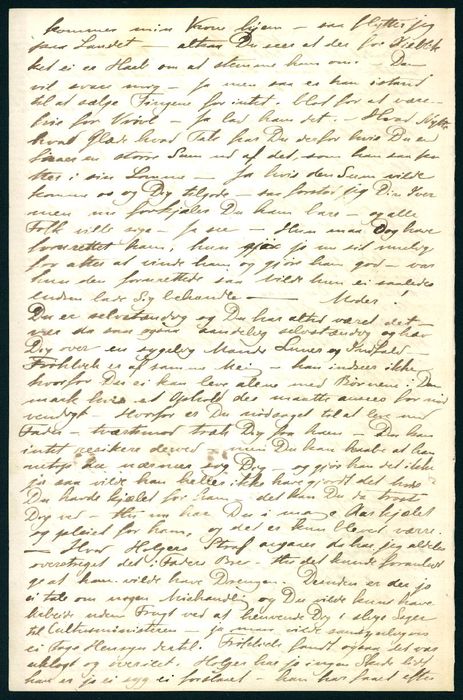 kommer min Kone hjem — saa flytter jeg
paa Landet — altsaa Du seer at der for Øieblik-
ket ei er Haab om at stemme ham om. Den
vil svare mig — Ja men saa er han istand
til at sælge Tingene for intet. blot for at være
fri for Vrøvl — Ja lad ham det. — Hvad Nytte
hvad Glæde hvad Tak har Du derfor hvis Du end
en større Sum ud af det, som han saa put-
ter i sin Lomme — Ja hvis den Sum vilde
komme os og Dig tilgode — saa forstod jeg Din Iver
men nu forkjæler Du ham bare — og alle
Folk ville sige — Ja see — Hun maa Dog have
forurettet ham, hun gjør jo nu sit mulig
for atter at vinde ham og gjøre ham god — var
hun den forurettede saa vilde hun ei saaledes
lade sig behandle — Moder!
Du er selvstændig og Du har altid været det —
vær da saa ogsaa aandelig selvstændig og hæv
Dig over en sygelig Mands Luner og Indfald —
Frölich er af samme Mening — han indseer ikke
hvorfor Du ei kan leve alene med Børnene i Dan
mark hvis et Ophold der maatte ansees for nød
vendigt — Hvorfor er Du nødsaget til at leve med
Fader — tværtimod træk Dig fra ham — Du kan
intet resikere derved — men Du kan haabe at han
nærmer sig Dig — og gjør han det ikke
ja saa vilde han heller ikke have gjort det hvis
Du havde kjælet for ham — det kan Du da trøste
Dig ved — thi nu har Du i mange Aar kjælet
og pleiet for ham, og det er kun blevet værre.
— Hvad Holgers Straf angaaer da har jeg aldeles
overstreget det i Faders Brev — thi det kunde foranledi
ge at han vilde have Drengen. Desuden er der jo
ei tale om nogen Mishandling og Du vilde kunne have
ved at henvende Dig i slige Sager
til Cultusministeren — ja man vilde sandsynligvis
ei tage Hensyn dertil. Frölich fandt ogsaa det var
uklogt og overilet. Holger har jo ingen Skade lidt
han er jo ei syg ei forslaaet — han har faaet efter